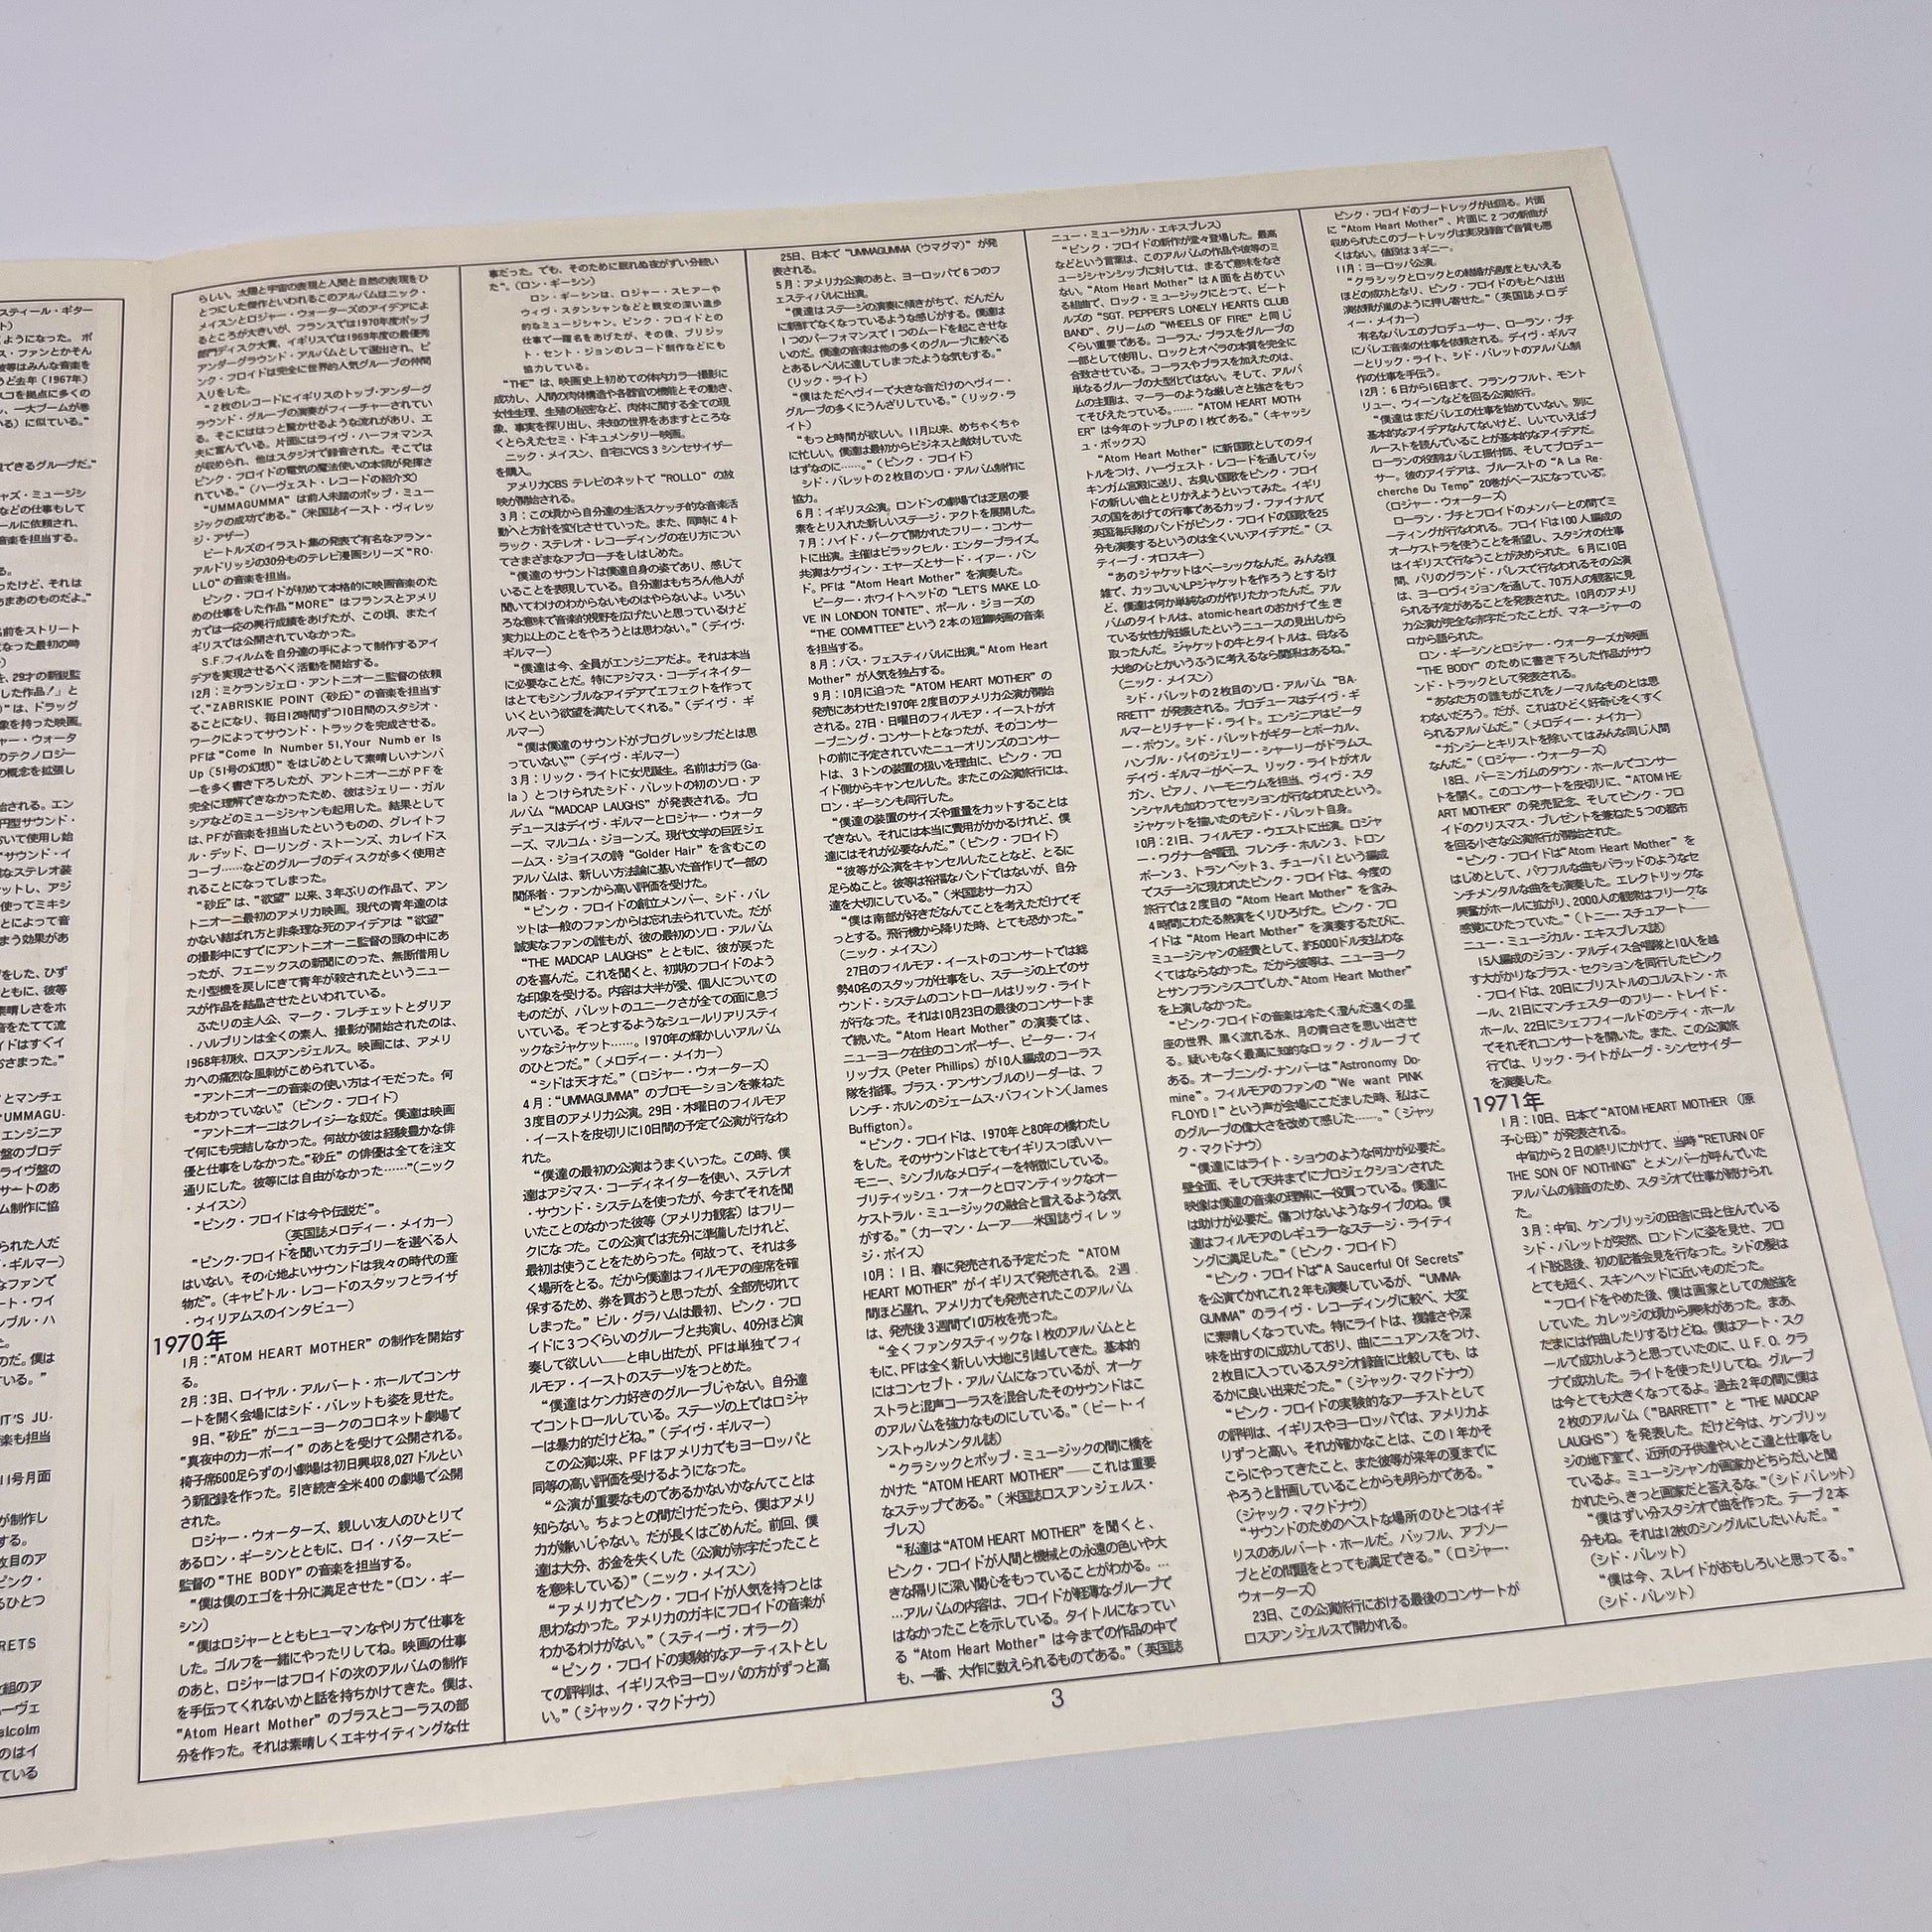 スティール・ギター
ようになった。ポ
ス・ファンとかそん
彼等はみんな音楽を
うど去年（1967年）
スコを拠点に多くの
し、一大ブームが巻
いる）に似ている。”
現できるグループだ。”
ャズ・ミュージシ
などの仕事もして
ールに依頼され、
音楽を担当する。
る。
ったけど、それは
あまあのものだよ。”
名前をストリート
なった最初の時
を、29才の新鋭監
した作品！」と
”は、ドラッグ
象を持った映画。
ャー・ウォータ
のテクノロジー
の概念を拡張し
始される。エン
円型サウンド・
おいて使用し始
“サウンド・イ
なステレオ装
ットし、アジ
使ってミキシ
とによって音
まう効果があ
をした、ひず
ともに、彼等
素晴しさをホ
音をたてて流
イドはすぐイ
おさまった。”
とマンチェ
UMMAGU-
エンジニア
盤のプロデ
ライヴ盤の
サートのあ
ム制作に協
られた人だ
・ギルマー）
なファンで
ート・ワイ
ンブル・ハ
のだ。僕は
ている。”
IT'S JU-
楽も担当
11号月面
が制作し
する。
枚目のア
ピンク・
るひとつ
RETS
枚組のア
ーヴェ
alcolm
のはイ
ている
らしい。太陽と宇宙の表現と人間と自然の表現をひ
とつにした傑作といわれるこのアルバムはニック・
メイスンとロジャー・ウォーターズのアイデアによ
るところが大きいが、フランスでは1970年度ポップ
部門ディスク大賞、イギリスでは1969年度の最優秀
アンダーグラウンド・アルバムとして選出され、ピ
ンク・フロイドは完全に世界的人気グループの仲間
入りをした。
“２枚のレコードにイギリスのトップ・アンダーグ
ラウンド・グループの演奏がフィーチャーされてい
る。そこにははっと驚かせるような流れがあり、工
夫に富んでいる。片面にはライヴ・パーフォマンス
が収められ、他はスタジオで録音された。そこでは
ピンク・フロイドの電気の魔法使いの本領が発揮さ
れている。”（ハーヴェスト・レコードの紹介文）
“UMMAGUMMA” は前人未踏のポップ・ミュー
ジックの成功である。”（米国誌イースト・ヴィレッ
ジ・アザー）
ビートルズのイラスト集の発表で有名なアラン・
アルドリッジの30分ものテレビ漫画シリーズ “RO-
LLO” の音楽を担当。
ピンク・フロイドが初めて本格的に映画音楽のた
めの仕事をした作品 “MORE” はフランスとアメリ
カでは一応の興行成績をあげたが、この頃、まだイ
ギリスでは公開されていなかった。
S.F.フィルムを自分達の手によって制作するアイ
デアを実現させるべく活動を開始する。
12月：ミケランジェロ・アントニオーニ監督の依頼
で、“ZABRISKIE POINT（砂丘）” の音楽を担当す
ることになり、毎日12時間ずつ10日間のスタジオ・
ワークによってサウンド・トラックを完成させる。
PFは “Come In Number 51,Your Number Is
Up（51号の幻想）” をはじめとして素晴しいナンバ
ーを多く書き下ろしたが、アントニオーニがＰＦを
完全に理解できなかったため、彼はジェリー・ガル
シアなどのミュージシャンも起用した。結果として
は、PFが音楽を担当したというものの、グレイトフ
ル・デッド、ローリング・ストーンズ、カレイドス
コープ……などのグループのディスクが多く使用さ
れることになってしまった。
“砂丘” は、“欲望” 以来、３年ぶりの作品で、アン
トニオーニ最初のアメリカ映画。現代の青年達のは
かない結ばれ方と非条理な死のアイデアは “欲望”
の撮影中にすでにアントニオーニ監督の頭の中にあ
ったが、フェニックスの新聞にのった、無断借用し
た小型機を戻しにきて青年が殺されたというニュー
スが作品を結晶させたといわれている。
ふたりの主人公、マーク・フレチェットとダリア
・ハルプリンは全くの素人、撮影が開始されたのは、
1968年初秋、ロスアンジェルス。映画には、アメリ
カへの痛烈な風刺がこめられている。
“アントニオーニの音楽の使い方はイモだった。何
もわかっていない。”（ピンク・フロイド）
“アントニオーニはクレイジーな奴だ。僕達は映画
で何にも完結しなかった。何故か彼は経験豊かな俳
優と仕事をしなかった。“砂丘” の俳優は全てを注文
通りにした。彼等には自由がなかった……”（ニック
・メイスン）
“ピンク・フロイドは今や伝説だ”。
（英国誌メロディー・メイカー）
“ピンク・フロイドを聞いてカテゴリーを選べる人
はいない。その心地よいサウンドは我々の時代の産
物だ”。（キャピトル・レコードのスタッフとライザ
・ウィリアムスのインタビュー）
1970年
１月：“ATOM HEART MOTHER” の制作を開始す
る。
２月：３日、ロイヤル・アルバート・ホールでコンサ
ートを開く会場にはシド・バレットも姿を見せた。
９日、“砂丘” がニューヨークのコロネット劇場で
“真夜中のカーボーイ” のあとを受けて公開される。
椅子席600足らずの小劇場は初日興収8,027ドルとい
う新記録を作った。引き続き全米400の劇場で公開
された。
ロジャー・ウォーターズ、親しい友人のひとりで
あるロン・ギーシンとともに、ロイ・バタースビー
監督の “THE BODY” の音楽を担当する。
“僕は僕のエゴを十分に満足させた”（ロン・ギー
シン）
“僕はロジャーとともヒューマンなやり方で仕事を
した。ゴルフを一緒にやったりしてね。映画の仕事
のあと、ロジャーはフロイドの次のアルバムの制作
を手伝ってくれないかと話を持ちかけてきた。僕は、
“Atom Heart Mother” のブラスとコーラスの部
分を作った。それは素晴しくエキサイティングな仕
事だった。でも、そのために眠れぬ夜がずい分続い
た”。（ロン・ギーシン）
ロン・ギーシンは、ロジャー・スピアーや
ウィヴ・スタンシャンなどと親交の深い進歩
的なミュージシャン。ピンク・フロイドとの
仕事で一躍名をあげたが、その後、ブリジッ
ト・セント・ジョンのレコード制作などにも
協力している。
“THE” は、映画史上初めての体内カラー撮影に
成功し、人間の肉体構造や各器官の機能とその動き、
女性生理、生殖の秘密など、肉体に関する全ての現
象、事実を探り出し、未知の世界をあますところな
くとらえたセミ・ドキュメンタリー映画。
ニック・メイスン、自宅にVCS 3 シンセサイザー
を購入。
アメリカCBS テレビのネットで “ROLLO” の放
映が開始される。
３月：この頃から自分達の生活スケッチ的な音楽活
動へと方針を変化させていった。また、同時に４ト
ラック・ステレオ・レコーディングの在り方につい
てさまざまなアプローチをしはじめた。
“僕達のサウンドは僕達自身の姿であり、感じて
いることを表現している。自分達はもちろん他人が
聞いてわけのわからないものはやらないよ。いろい
ろな意味で音楽的視野を広げたいと思っているけど
実力以上のことをやろうとは思わない。”（デイヴ・
ギルマー）
“僕達は今、全員がエンジニアだよ。それは本当
に必要なことだ。特にアジマス・コーディネイター
はとてもシンプルなアイデアでエフェクトを作って
いくという欲望を満たしてくれる。”（デイヴ・ギ
ルマー）
“僕は僕達のサウンドがプログレッシブだとは思
っていない””（デイヴ・ギルマー）
３月：リック・ライトに女児誕生。名前はガラ（Ga-
la ）とつけられたシド・バレットの初のソロ・ア
ルバム “MADCAP LAUGHS” が発表される。プロ
デュースはデイヴ・ギルマーとロジャー・ウォータ
ーズ、マルコム・ジョーンズ。現代文学の巨匠ジェ
ームス・ジョイスの詩 “Golder Hair” を含むこの
アルバムは、新しい方法論に基いた音作りで一部の
関係者・ファンから高い評価を受けた。
“ピンク・フロイドの創立メンバー、シド・バレ
ットは一般のファンからは忘れ去られていた。だが
誠実なファンの誰もが、彼の最初のソロ・アルバム
“THE MADCAP LAUGHS” とともに、彼が戻った
のを喜んだ。これを聞くと、初期のフロイドのよう
な印象を受ける。内容は大半が愛、個人についての
ものだが、バレットのユニークさが全ての面に息づ
いている。ぞっとするようなシュールリアリスティ
ックなジャケット……。1970年の輝かしいアルバム
のひとつだ。”（メロディー・メイカー）
“シドは天才だ。”（ロジャー・ウォーターズ）
４月：“UMMAGUMMA” のプロモーションを兼ねた
３度目のアメリカ公演。29日・木曜日のフィルモア
・イーストを皮切りに10日間の予定で公演が行なわ
れた。
“僕達の最初の公演はうまくいった。この時、僕
達はアジマス・コーディネイターを使い、ステレオ
・サウンド・システムを使ったが、今までそれを聞
いたことのなかった彼等（アメリカ観客）はフリー
クになった。この公演では充分に準備したけれど、
最初は使うことをためらった。何故って、それは多
く場所をとる。だから僕達はフィルモアの座席を確
保するため、券を買おうと思ったが、全部売切れて
しまった。” ビル・グラハムは最初、ピンク・フロ
イドに３つぐらいのグループと共演し、40分ほど演
奏して欲しい——と申し出たが、PFは単独でフィ
ルモア・イーストのステージをつとめた。
“僕達はケンカ好きのグループじゃない。自分達
でコントロールしている。ステージの上ではロジャ
ーは暴力的だけどね。”（デイヴ・ギルマー）
この公演以来、PFはアメリカでもヨーロッパと
同等の高い評価を受けるようになった。
“公演が重要なものであるかないかなんてことは
知らない。ちょっとの間だけだったら、僕はアメリ
カが嫌いじゃない。だが長くはごめんだ。前回、僕
達は大分、お金を失くした（公演が赤字だったこと
を意味している）”（ニック・メイスン）
“アメリカでピンク・フロイドが人気を持つとは
思わなかった。アメリカのガキにフロイドの音楽が
わかるわけがない。”（スティーヴ・オラーク）
“ピンク・フロイドの実験的なアーティストとし
ての評判は、イギリスやヨーロッパの方がずっと高
い。”（ジャック・マクドナウ）
25日、日本で “UMMAGUMMA（ウマグマ）” が発
表される。
５月：アメリカ公演のあと、ヨーロッパで６つのフ
ェスティバルに出演。
“僕達はステージの演奏に傾きがちで、だんだん
に新鮮でなくなっているような感じがする。僕達は
１つのパーフォマンスで１つのムードを起こさせな
いのだ。僕達の音楽は他の多くのグループに較べる
とあるレベルに達してしまったような気もする。”
（リック・ライト）
“僕はただヘヴィーで大きな音だけのヘヴィー・
グループの多くにうんざりしている。”（リック・ラ
イト）
“もっと時間が欲しい。11月以来、めちゃくちゃ
に忙しい。僕達は最初からビジネスと敵対していた
はずなのに……。”（ピンク・フロイド）
シド・バレットの２枚目のソロ・アルバム制作に
協力。
６月：イギリス公演。ロンドンの劇場では芝居の要
素をとり入れた新しいステージ・アクトを展開した。
７月：ハイド・パークで開かれたフリー・コンサー
トに出演。主催はビラックヒル・エンタープライズ。
共演はケヴィン・エヤーズとサード・イアー・バン
ド。PFは “Atom Heart Mother” を演奏した。
ピーター・ホワイトヘッドの “LET'S MAKE LO-
VE IN LONDON TONITE”、ポール・ジョーズの
“THE COMMITTEE” という２本の短篇映画の音楽
を担当する。
８月：バス・フェスティバルに出演。“Atom Heart
Mother” が人気を独占する。
９月：10月に迫った “ATOM HEART MOTHER” の
発売にあわせた1970年２度目のアメリカ公演が開始
される。27日・日曜日のフィルモア・イーストがオ
ープニング・コンサートとなったが、そのコンサー
トの前に予定されていたニューオリンズのコンサー
トは、３トンの装置の扱いを理由に、ピンク・フロ
イド側からキャンセルした。またこの公演旅行には、
ロン・ギーシンも同行した。
“僕達の装置のサイズや重量をカットすることは
できない。それには本当に費用がかかるけれど、僕
達にはそれが必要なんだ。”（ピンク・フロイド）
“彼等が公演をキャンセルしたことなど、とるに
足らぬこと。彼等は裕福なバンドではないが、自分
達を大切にしている。”（米国誌サーカス）
“僕は南部が好きだなんてことを考えただけでぞ
っとする。飛行機から降りた時、とても恐かった。”
（ニック・メイスン）
27日のフィルモア・イーストのコンサートでは総
勢40名のスタッフが仕事をし、ステージの上でのサ
ウンド・システムのコントロールはリック・ライト
が行なった。それは10月23日の最後のコンサートま
で続いた。“Atom Heart Mother” の演奏では、
ニューヨーク在住のコンポーザー、ピーター・フィ
リップス（Peter Phillips）が10人編成のコーラス
隊を指揮。ブラス・アンサンブルのリーダーは、フ
レンチ・ホルンのジェームス・バフィントン（James
Buffigton）。
“ピンク・フロイドは、1970年と80年の橋わたし
をした。そのサウンドはとてもイギリスっぽいハー
モニー、シンプルなメロディーを特徴にしている。
ブリティッシュ・フォークとロマンティックなオー
ケストラル・ミュージックの融合と言えるような気
がする。”（カーマン・ムーア——米国誌ヴィレッ
ジ・ボイス）
10月：１日、春に発売される予定だった “ATOM
HEART MOTHER” がイギリスで発売される。２週
間ほど遅れ、アメリカでも発売されたこのアルバム
は、発売後３週間で10万枚を売った。
“全くファンタスティックな１枚のアルバムとと
もに、PFは全く新しい大地に引越してきた。基本的
にはコンセプト・アルバムになっているが、オーケ
ストラと混声コーラスを混合したそのサウンドはこ
のアルバムを強力なものにしている。”（ビート・イ
ンストゥルメンタル誌）
“クラシックとポップ・ミュージックの間に橋を
かけた “ATOM HEART MOTHER”——これは重要
なステップである。”（米国誌ロスアンジェルス・
プレス）
“私達は “ATOM HEART MOTHER” を聞くと、
ピンク・フロイドが人間と機械との永遠の色いや大
きな隔りに深い関心をもっていることがわかる。…
…アルバムの内容は、フロイドが軽薄なグループで
はなかったことを示している。タイトルになってい
る “Atom Heart Mother” は今までの作品の中で
も、一番、大作に数えられるものである。”（英国誌
ニュー・ミュージカル・エキスプレス）
“ピンク・フロイドの新作が堂々登場した。最高
などという言葉は、このアルバムの作品や彼等のミ
ュージシャンシップに対しては、まるで意味をなさ
ない。“Atom Heart Mother” はＡ面を占めてい
る組曲で、ロック・ミュージックにとって、ビート
ルズの “SGT. PEPPER'S LONELY HEARTS CLUB
BAND”、クリームの “WHEELS OF FIRE” と同じ
ぐらい重要である。コーラス、ブラスをグループの
一部として使用し、ロックとオペラの本質を完全に
合致させている。コーラスやブラスを加えたのは、
単なるグループの大型化ではない。そして、アルバ
ムの主題は、マーラーのような厳しさと強さをもっ
てそびえたっている。…… “ATOM HEART MOTH-
ER” は今年のトップLPの１枚である。”（キャッシ
ュ・ボックス）
“Atom Heart Mother” に新国歌としてのタイ
トルをつけ、ハーヴェスト・レコードを通してバッ
キンガム宮殿に送り、古臭い国歌をピンク・フロイ
ドの新しい曲ととりかえようといってみた。イギリ
スの国をあげての行事であるカップ・ファイナルで
英国海兵隊のバンドがピンク・フロイドの国歌を25
分も演奏するというのは全くいいアイデアだ。”（ス
ティーブ・オロスキー）
“あのジャケットはベーシックなんだ。みんな複
雑で、カッコいいLPジャケットを作ろうとするけ
ど、僕達は何か単純なのが作りたかったんだ。アル
バムのタイトルは、atomic-heartのおかげで生き
ている女性が妊娠したというニュースの見出しから
取ったんだ。ジャケットの牛とタイトルは、母なる
大地の心とかいうふうに考えるなら関係はあるね。”
（ニック・メイスン）
シド・バレットの２枚目のソロ・アルバム “BA-
RRETT” が発表される。プロデュースはデイヴ・ギ
ルマーとリチャード・ライト。エンジニアはピータ
ー・ボウン。シド・バレットがギターとボーカル、
ハンブル・パイのジェリー・シャーリーがドラムス、
デイヴ・ギルマーがベース、リック・ライトがオル
ガン、ピアノ、ハーモニウムを担当、ヴィヴ・スタ
ンシャルも加わってセッションが行なわれたという。
ジャケットを描いたのもシド・バレット自身。
10月：21日、フィルモア・ウエストに出演。ロジャ
ー・ワグナー合唱団、フレンチ・ホルン３、トロン
ボーン３、トランペット３、チューバ１という編成
でステージに現われたピンク・フロイドは、今度の
旅行では２度目の “Atom Heart Mother” を含み、
４時間にわたる熱演をくりひろげた。ピンク・フロ
イドは “Atom Heart Mother” を演奏するたびに、
ミュージシャンの経費として、約5000ドル支払わな
くてはならなかった。だから彼等は、ニューヨーク
とサンフランシスコでしか、“Atom Heart Mother”
を上演しなかった。
“ピンク・フロイドの音楽は冷たく澄んだ遠くの星
座の世界、黒く流れる水、月の青白さを思い出させ
る。疑いもなく最高に知的なロック・グループで
ある。オープニング・ナンバーは “Astronomy Do-
mine”。フィルモアのファンの “We want PINK
FLOYD！” という声が会場にこだました時、私はこ
のグループの偉大さを改めて感じた……。”（ジャッ
ク・マクドナウ）
“僕達にはライト・ショウのような何かが必要だ。
壁全面、そして天井までにプロジェクションされた
映像は僕達の音楽の理解に一役買っている。僕達に
は助けが必要だ。傷つけないようなタイプのね。僕
達はフィルモアのレギュラーなステージ・ライティ
ングに満足した。”（ピンク・フロイド）
“ピンク・フロイドは “A Saucerful Of Secrets”
を公演でかれこれ２年も演奏しているが、“UMMA-
GUMMA” のライヴ・レコーディングに較べ、大変
に素晴しくなっていた。特にライトは、複雑さや深
味を出すのに成功しており、曲にニュアンスをつけ、
２枚目に入っているスタジオ録音に比較しても、は
るかに良い出来だった。”（ジャック・マクドナウ）
“ピンク・フロイドの実験的なアーチストとして
の評判は、イギリスやヨーロッパでは、アメリカよ
りずっと高い。それが確かなことは、この１年かそ
こらにやってきたこと、また彼等が来年の夏までに
やろうと計画していることからも明らかである。”
（ジャック・マクドナウ）
“サウンドのためのベストな場所のひとつはイギ
リスのあルバート・ホールだ。バッフル、アブソー
ブとどの問題をとっても満足できる。”（ロジャー・
ウォーターズ）
23日、この公演旅行における最後のコンサートが
ロスアンジェルスで開かれる。
ピンク・フロイドのブートレッグが出回る。片面
に “Atom Heart Mother”、片面に２つの新曲が
収められたこのブートレッグは実況録音で音質も悪
くはない。値段は３ギニー。
11月：ヨーロッパ公演。
“クラシックとロックとの結婚が過度ともいえる
ほどの成功となり、ピンク・フロイドのもとへは出
演依頼が嵐のように押し寄せた。”（英国誌メロデ
ィー・メイカー）
有名なバレエのプロデューサー、ローラン・プチ
にバレエ音楽の仕事を依頼される。デイヴ・ギルマ
ーとリック・ライト、シド・バレットのアルバム制
作の仕事を手伝う。
12月：６日から16日まで、フランクフルト、モント
リュー、ウィーンなどを回る公演旅行。
“僕達はまだバレエの仕事を始めていない。別に
基本的なアイデアなんてないけど、しいていえばプ
ルーストを読んでいることが基本的なアイデアだ。
ローランの役割はバレエ振付師、そしてプロデュー
サー。彼のアイデアは、プルーストの “A La Re-
cherche Du Temp” 20巻がベースになっている。”
（ロジャー・ウォーターズ）
ローラン・プチとフロイドのメンバーとの間でミ
ーティングが行なわれる。フロイドは100人編成の
オーケストラを使うことを希望し、スタジオの仕事
はイギリスで行なうことが決められた。６月に10日
間、パリのグランド・パレスで行なわれるその公演
は、ヨーロヴィジョンを通して、70万人の観客に見
られる予定があることを発表された。10月のアメリ
カ公演が完全な赤字だったことが、マネージャーの
口から語られた。
ロン・ギーシンとロジャー・ウォーターズが映画
“THE BODY” のために書き下ろした作品がサウ
ンド・トラックとして発売される。
“あなた方の誰もがこれをノーマルなものとは思
わないだろう。だが、これはひどく好奇心をくすぐ
られるアルバムだ。”（メロディー・メイカー）
“ガンジーとキリストを除いてはみんな同じ人間
なんだ。”（ロジャー・ウォーターズ）
18日、バーミンガムのタウン・ホールでコンサー
トを開く。このコンサートを皮切りに、“ATOM HE-
ART MOTHER” の発売記念、そしてピンク・フロ
イドのクリスマス・プレゼントを兼ねた５つの都市
を回る小さな公演旅行が開始された。
“ピンク・フロイドは “Atom Heart Mother” を
はじめとして、パワフルな曲もバラッドのようなセ
ンチメンタルな曲をも演奏した。エレクトリックな
興奮がホールに拡がり、2000人の観衆はフリークな
感覚にひたっていた。”（トニー・スチュアート——
ニュー・ミュージカル・エキスプレス誌）
15人編成のジョン・アルディス合唱隊と10人を越
す大がかりなブラス・セクションを同行したピンク
・フロイドは、20日にブリストルのコルストン・ホ
ール、21日にマンチェスターのフリー・トレイド・
ホール、22日にシェフフィールドのシティ・ホール
でそれぞれコンサートを開いた。また、この公演旅
行では、リック・ライトがムーグ・シンセサイダー
を演奏した。
1971年
１月：10日、日本で “ATOM HEART MOTHER（原
子心母）” が発売される。
中旬から２日の終りにかけて、当時 “RETURN OF
THE SON OF NOTHING” とメンバーが呼んでいた
アルバムの録音のため、スタジオで仕事が続けられ
た。
３月：中旬、ケンブリッジの田舎に母と住んでいる
シド・バレットが突然、ロンドンに姿を見せ、フロ
イド脱退後、初の記者会見を行なった。シドの髪は
とても短く、スキンヘッドに近いものだった。
“フロイドをやめた後、僕は画家としての勉強を
していた。カレッジの頃から興味があった。まあ、
たまには作曲したりするけどね。僕はアート・スク
ールで成功しようと思っていたのに、U.F.O. クラ
ブで成功した。ライトを使ったりしてね。グループ
は今とても大きくなってるよ。過去２年の間に僕は
２枚のアルバム（“BARRETT” と “THE MADCAP
LAUGHS”）を発表した。だけど今は、ケンブリッ
ジの地下室で、近所の子供達やいとこ達と仕事をし
ているよ。ミュージシャンか画家かどちらだいと聞
かれたら、きっと画家だと答えるな。”（シド・バレット）
“僕はずい分スタジオで曲を作った。テープ２本
分もね。それは12枚のシングルにしたいんだ。”
（シド・バレット）
“僕は今、スレイドがおもしろいと思ってる。”
（シド・バレット）
3